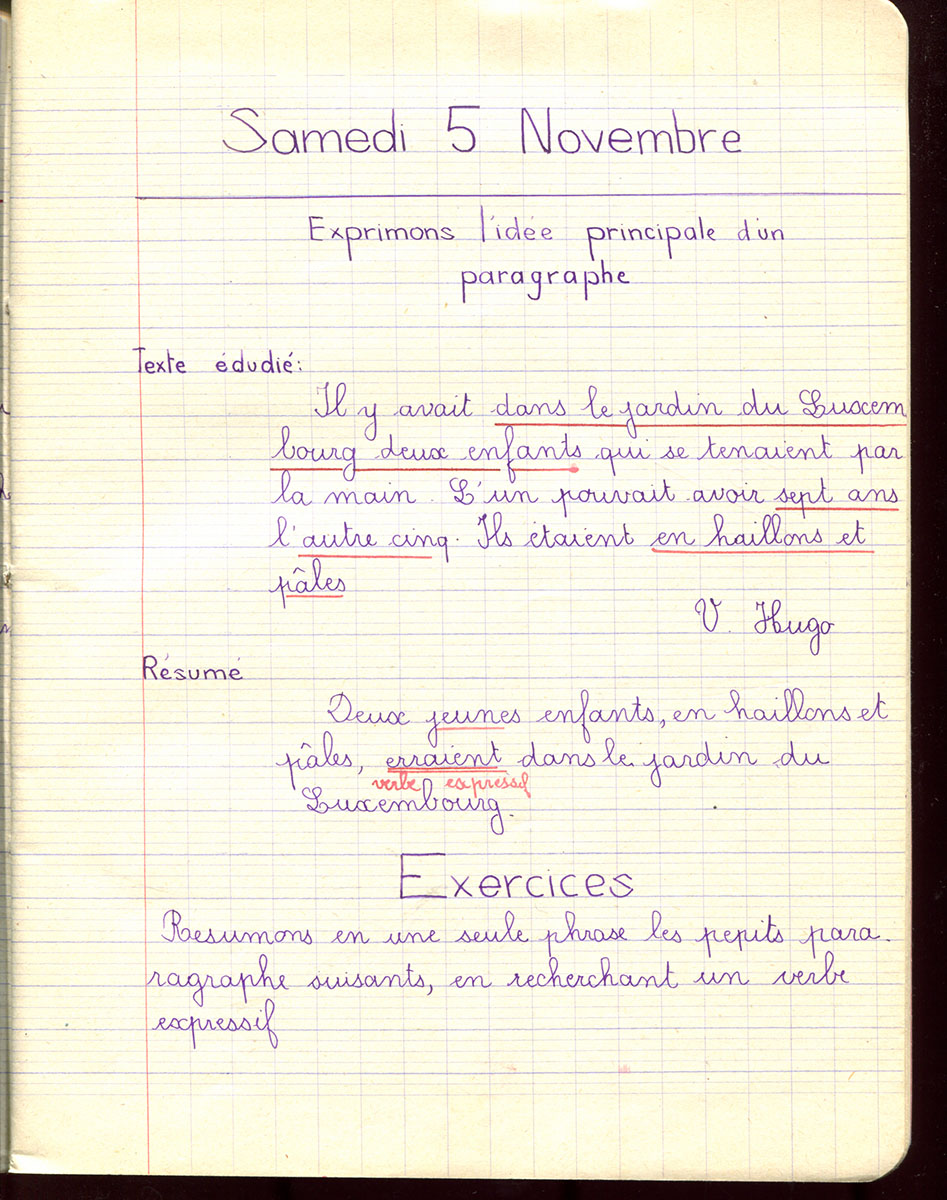 Samedi 5 Novembre
Exprimons l'idée principale d'un
paragraphe
Texte édudié:
Il y avait dans le jardin du Luxem
bourg deux enfants qui se tenaient par
la main. L'un pouvait avoir sept ans
l'autre cinq. Ils étaient en haillons et
pâles
V. Hugo
Résumé
Deux jeunes enfants, en haillons et
pâles, erraient dans le jardin du
verbe expressif
Luxembourg.
Exercices
Resumons en une seule phrase les pepits para.
ragraphe suisants, en recherchant un verbe
expressif